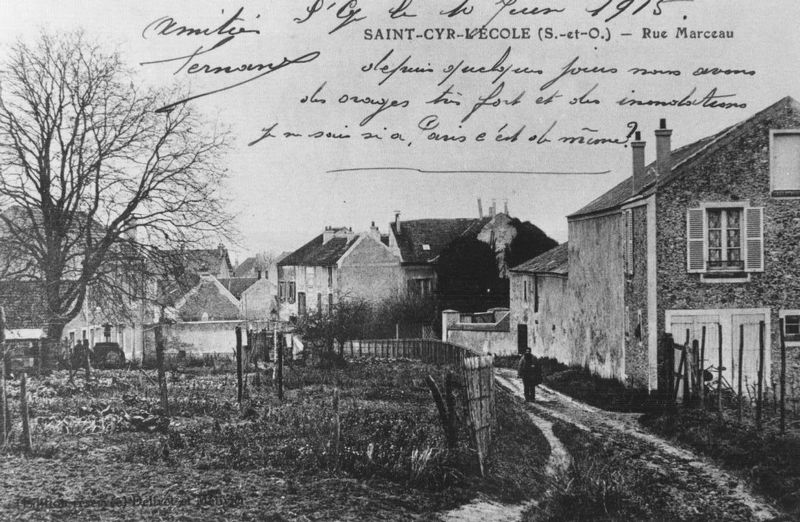 St Cyr le 10 Juin 1915
SAINT-CYR-L'ÉCOLE (S.-et-O.) — Rue Marceau
Amitiés
Fernand
depuis quelques jours nous avons
des orages très fort et des inondations
je ne sais si a, Paris c'est de même?